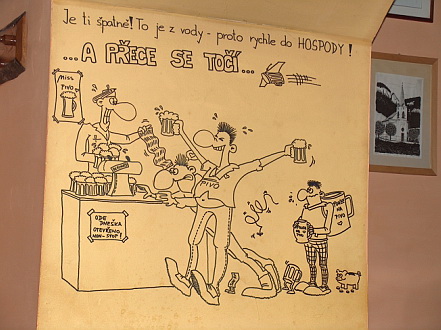 Je ti špatně? To je z vody - proto rychle do HOSPODY!
...A PŘECE SE TOČÍ...
MISS
PIVO
PIVO
ODE
DNEŠKA
OTEVŘENO
NON-STOP!
NA
PIVO